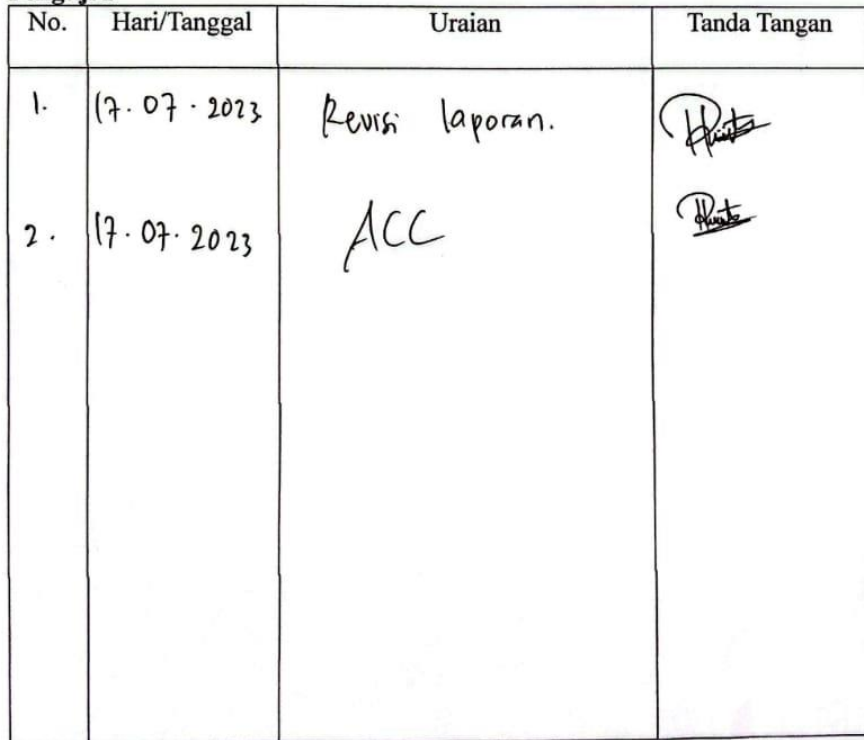 No. Hari/Tanggal Uraian Tanda Tangan
1. 17.07.2023 Revisi laporan.
2. 17.07.2023 ACC